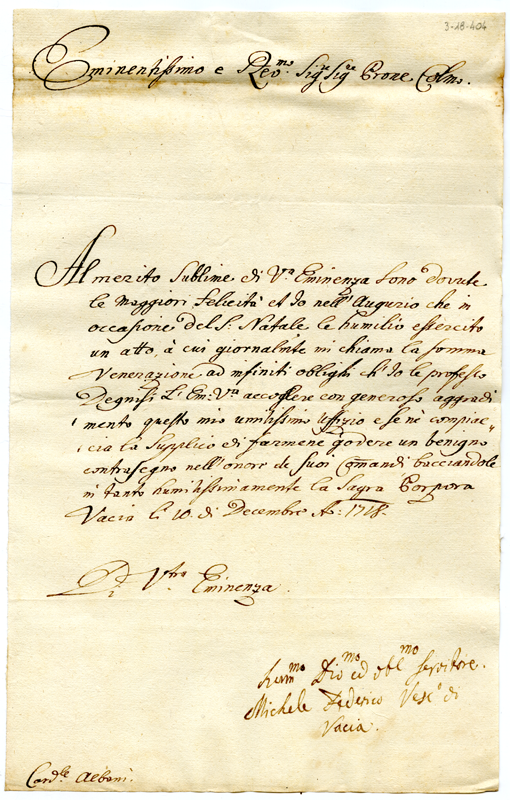 3-18-404
Eminentissimo e Rev.mo Sig.re Sig.re Prone Colmo.
Al merito sublime di V.a Eminenza sono dovute
le maggiori felicità et Io nell'Augurio che in
occasione del S. Natale le humilio essercito
un atto, à cui giornalmte mi chiama la somma
Venerazione, ad infiniti oblighi ch'Io le professo
Degnisi L'Em: V.ra accogliere con generoso aggradi
mento questo mio umilissimo Uffizio e se nè compiac=
cia la supplico di farmene godere un benigno
contrasegno nell'onore de suoi Comandi bacciandole
in tanto humilissimamente la Sagra Porpora
Vacia li 10. di Decembre A.: 1718.
Di V.tra Eminenza.
Dio.mo ed obl.mo servitore.
Michele Federico Vesc.o di
Vacia.
Card.le Albani.